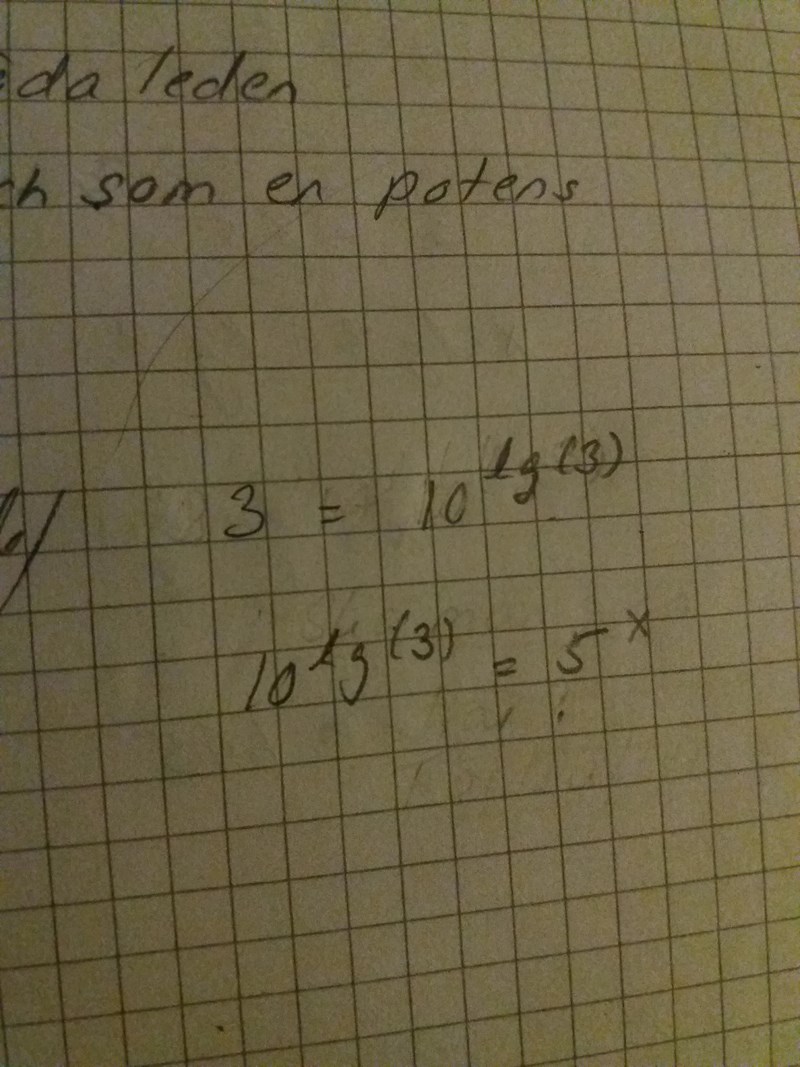 da leden
som en potens
b) 3 = 10^lg(3)
10^lg(3) = 5^x